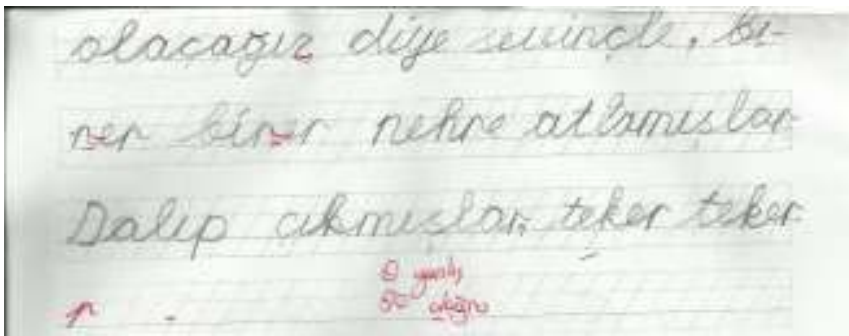 olacağız diye sevinçle, bi-
rer birer nehre atlamışlar
Dalıp çıkmışlar, teker teker
yanlış
doğru